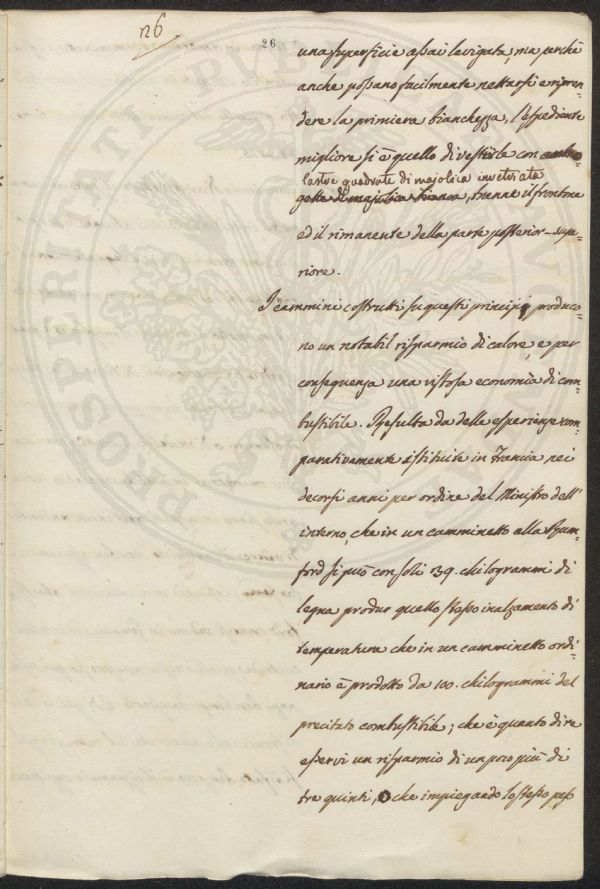 n6
26
una superficie assai levigata, ma perchè
anche possano facilmente nettarsi e ripren-
dere la primiera bianchezza, l'espediente
migliore si è quello di vestirle con
lastre quadrate di majolica invetriata
gette di majolica bianca, tranne il frontone
ed il rimanente della parte posterior-supe-
riore.
I cammini costrutti su questi principj produco-
no un notabil risparmio di calore, e per
conseguenza una vistosa economia di com-
bustibile. Resulta da delle esperienze com-
parativamente istituite in Francia nei
decorsi anni per ordine del Ministro dell'
interno, che in un camminetto alla Rum-
ford si può con soli 39. chilogrammi di
legna produr quello stesso inalzamento di
temperatura che in un camminetto ordi-
nario è prodotto da 100. chilogrammi del
precitato combustibile; che è quanto dire
esservi un risparmio di un poco più di
tre quinti, o che impiegando lo stesso peso
PROSPERITATI PVBLICAE AVGENDAE